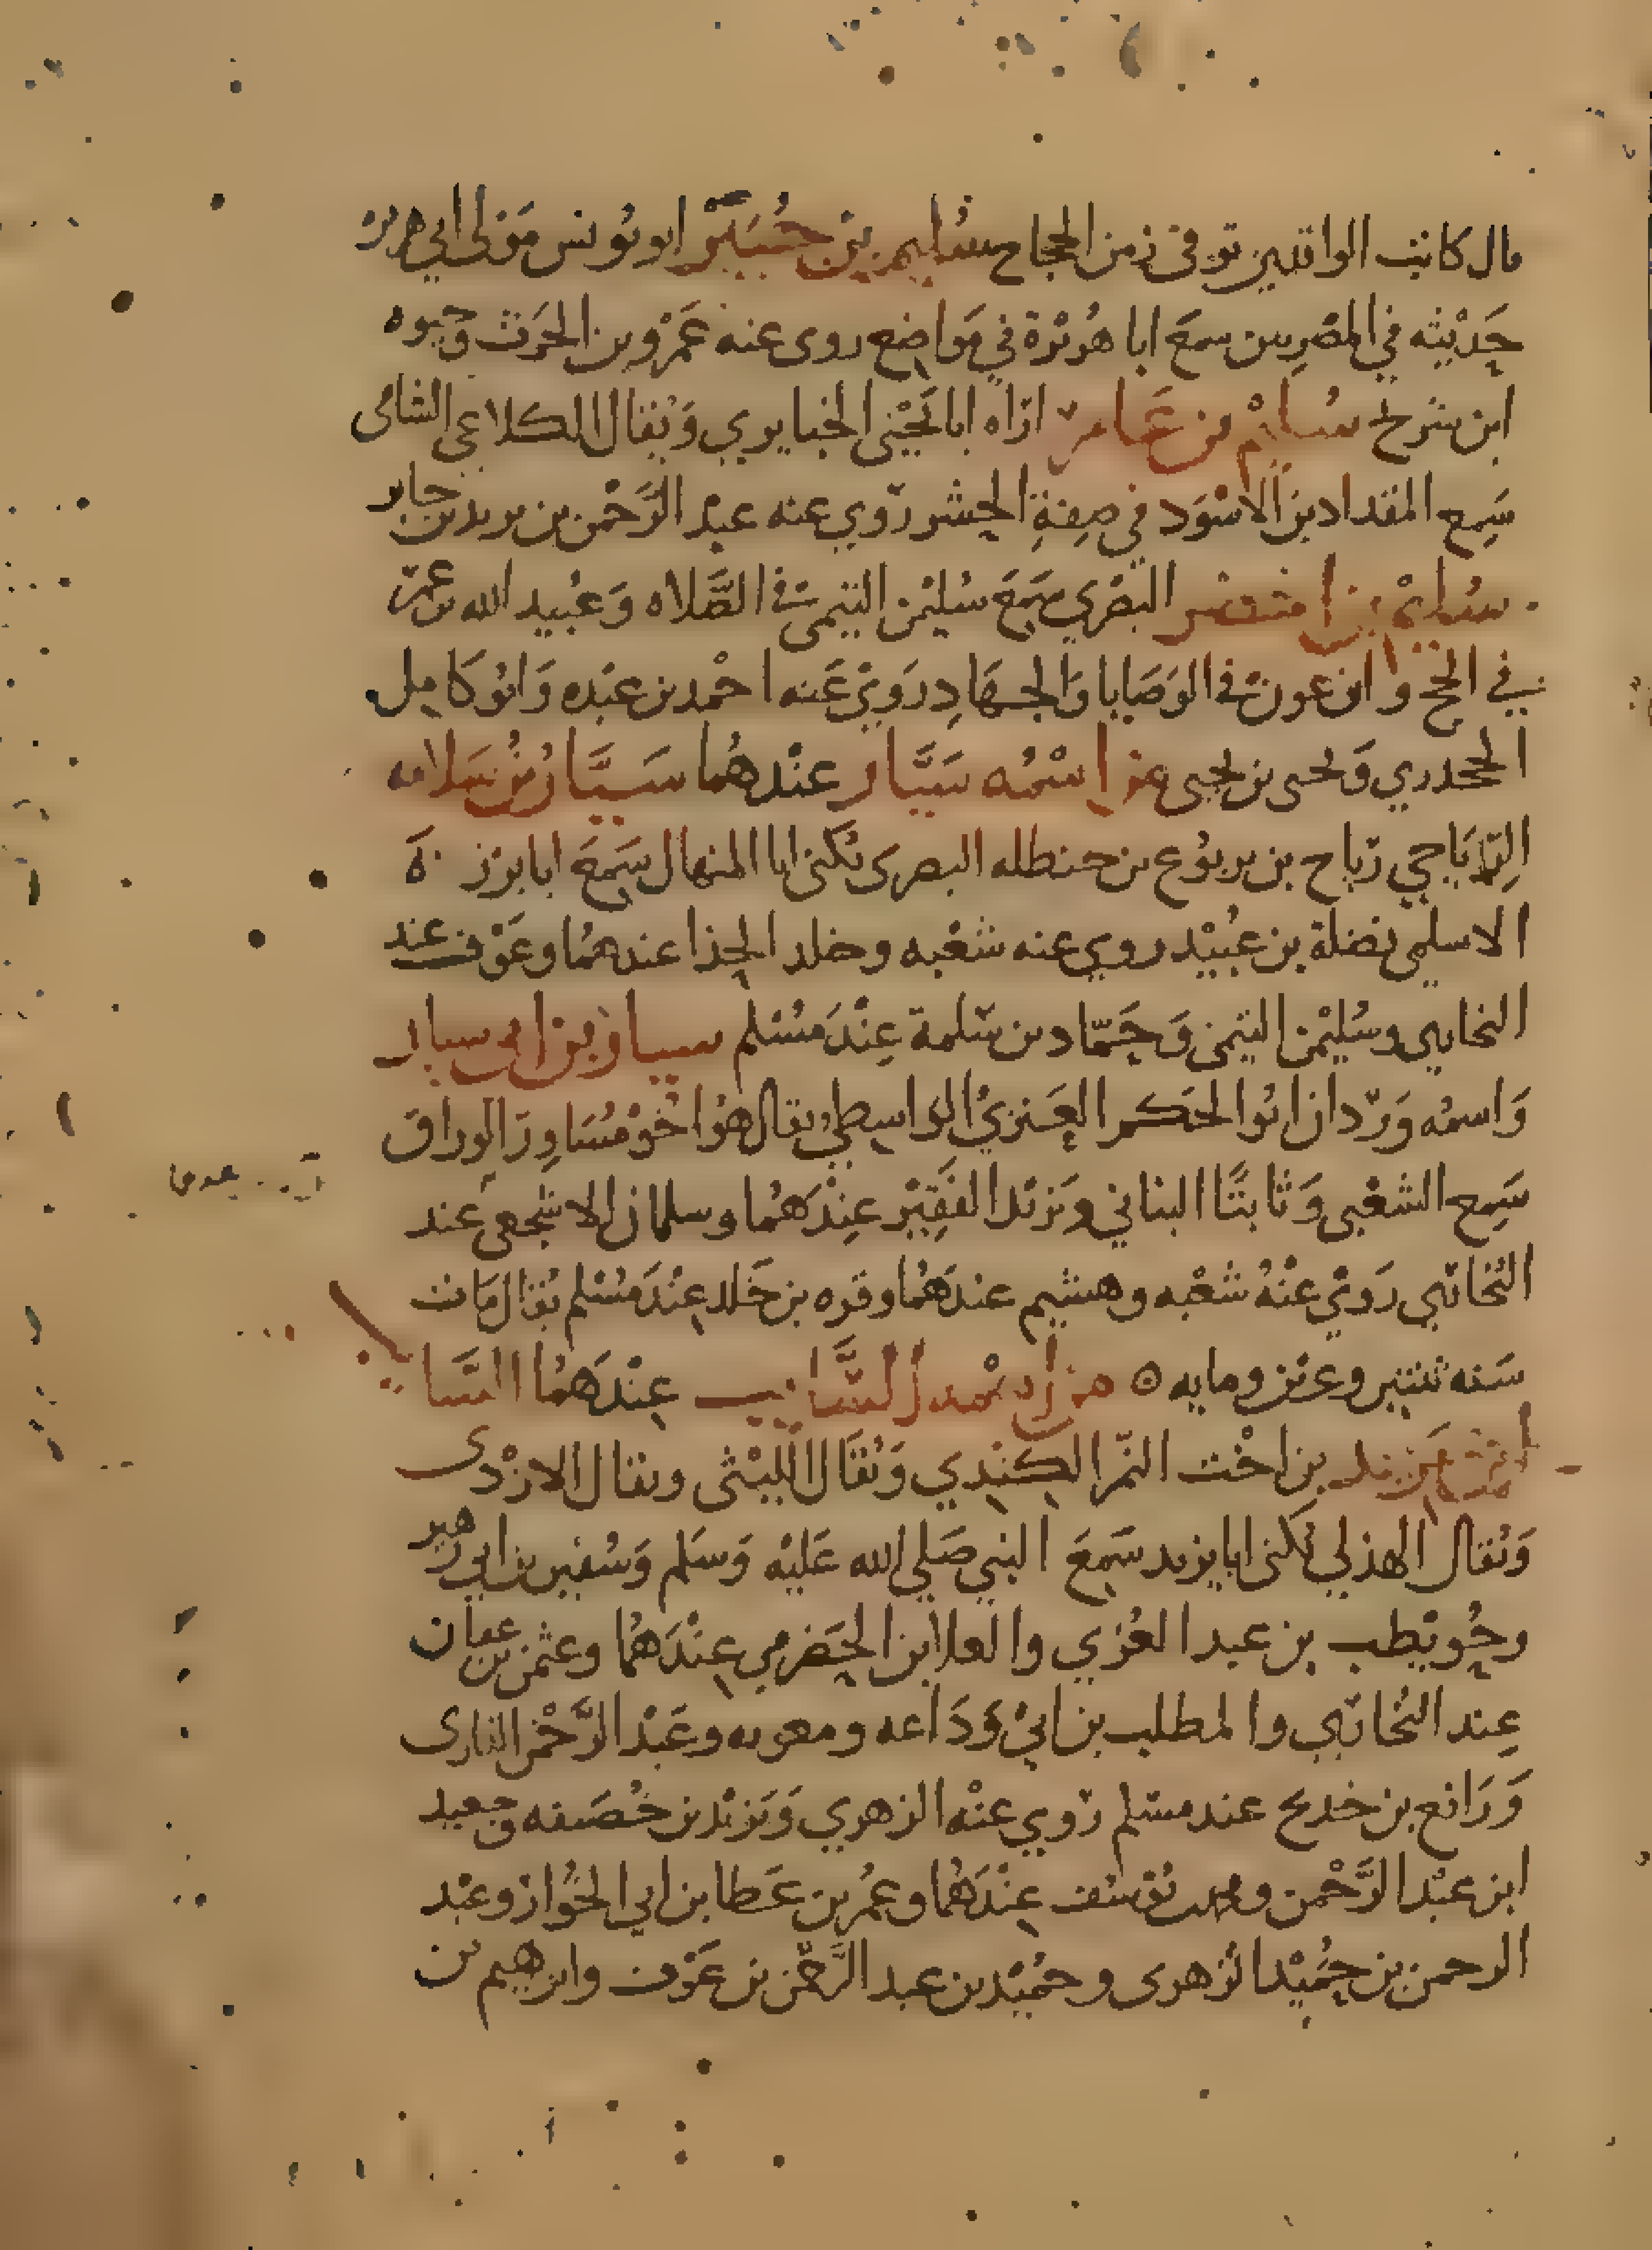 قال كاتب الواقدي توفي زمن الحجاج سليم بن جبير ابو يونس مولى ابي هريرة
حديثه في المصريين سمع ابا هريرة في مواضع روى عنه عمرو بن الحرث وحيوه
ابن شريح سليم بن عامر اراه ابا يحيى الخبايري ويقال الكلاعي الشامي
سمع المقداد بن الاسود في صفة الحشر روي عنه عبد الرحمن بن يزيد بن جابر
سليم بن اخضر البصري سمع سليمن التيمي في الصلاه وعبيد الله بن عمر
في الحج وابن عون في الوصايا والجهاد روي عنه احمد بن عبده وابو كامل
الجحدري ويحيى بن يحيى من اسمه سيار عندهما سيار بن سلامه
الرياحي رياح بن يربوع بن حنظله البصري يكنى ابا المنهال سمع ابا برزة
الاسلمي نضلة بن عبيد روي عنه شعبه وخلد الحذا عندهما وعوف عند
البخاري وسليمن التيمي وحماد بن سلمة عند مسلم سيار بن ابي سيار
واسمه وردان ابو الحكم العنزي الواسطي يقال هو اخو مساور الوراق
سمع الشعبي وثابتا البناني ويزيد الفقير عندهما وسلمان الاشجعي عند
البخاري روي عنه شعبه وهشيم عندهما وقره بن خلد عند مسلم يقال مات
سنه ثنتين وعشرين ومايه ه من اسمه السايب عندهما السايب
بن يزيد بن اخت النمر الكندي ويقال الليثي ويقال الازدي
ويقال الهذلي يكنى ابا يزيد سمع النبي صلي الله عليه وسلم وسفين بن ابي زهير
وحويطب بن عبد العزي والعلا بن الحضرمي عندهما وعثمن بن عفان
عند البخاري والمطلب بن ابي وداعه ومعويه وعبد الرحمن القاري
ورافع بن خديج عند مسلم روي عنه الزهري ويزيد بن خصيفه وجعيد
ابن عبد الرحمن ومحمد بن يوسف عندهما وعمر بن عطا بن ابي الخوار وعبد
الرحمن بن حميد الزهري وحميد بن عبد الرحمن بن عوف وابرهيم بن